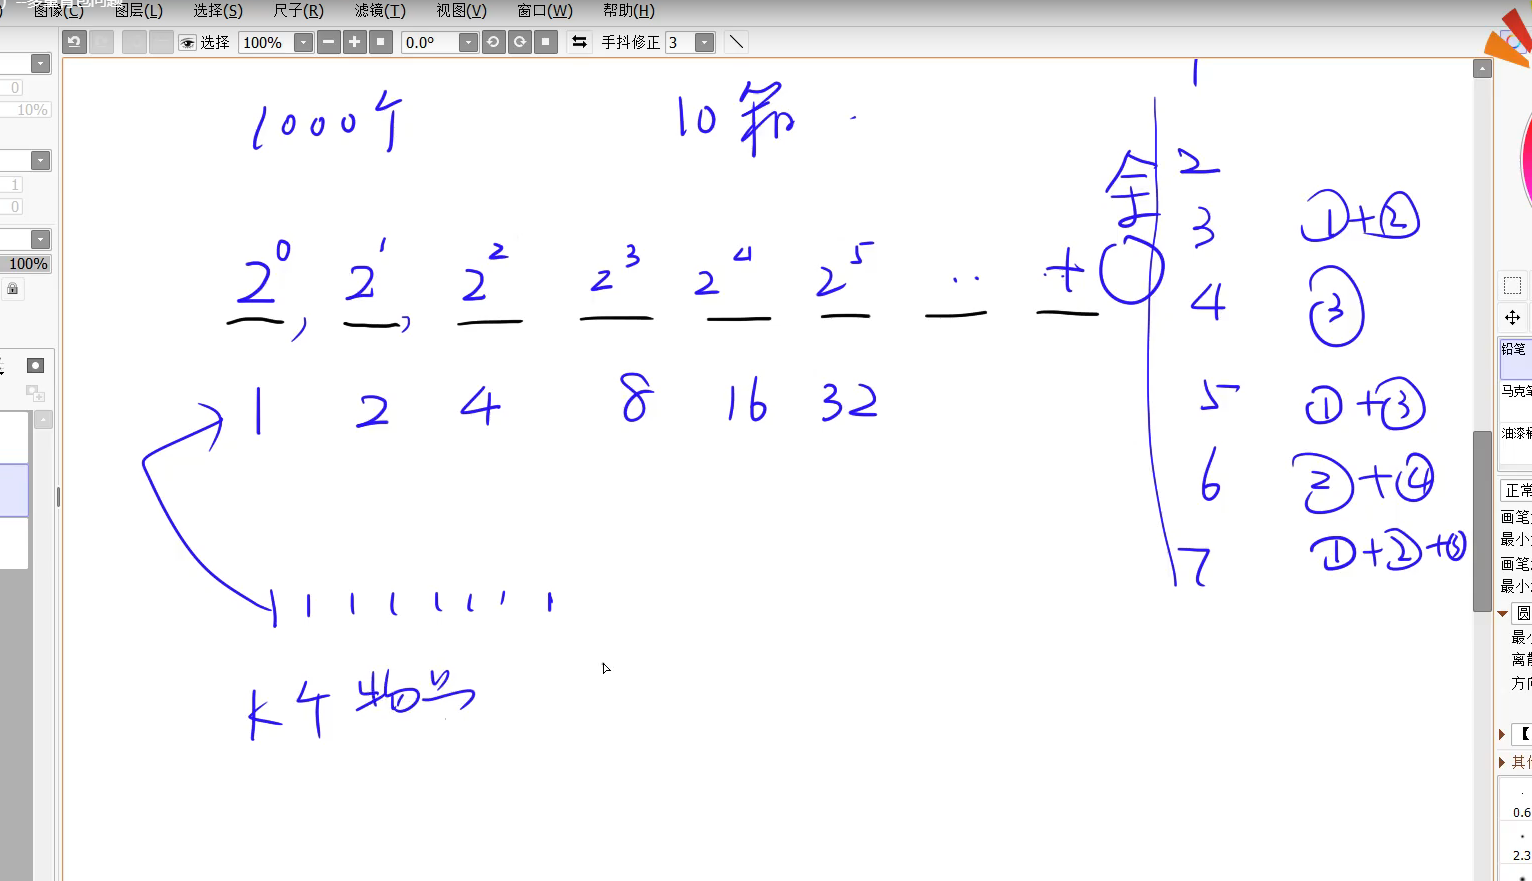 图像(C) 图层(L) 选择(S) 尺子(R) 滤镜(T) 视图(V) 窗口(W) 帮助(H)
选择 100% 0.0° 手抖修正 3
0
10%
1
0
100%
1000个 10箱
2^0, 2^1, 2^2 2^3 2^4 2^5 .. +
1 2 4 8 16 32
K个物品
1
2
3 ①+②
4 ③
5 ①+③
6 ②+④
7 ①+②+③
铅笔
马克笔
油漆桶
正常
画笔
最小
画笔
最小
圆
最小
离散
方向
【
其他
0.6
2.3